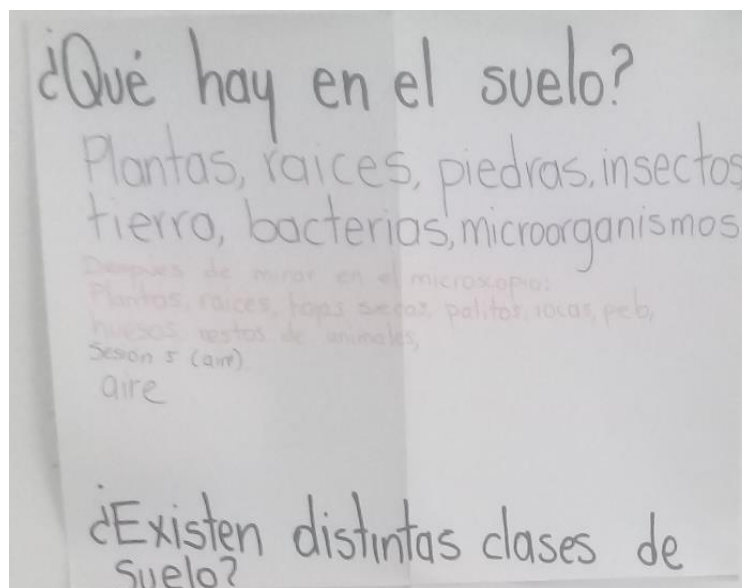 ¿Qué hay en el suelo?
Plantas, raices, piedras, insectos
tierra, bacterias, microorganismos
Despues de mirar en el microscopio:
Plantas, raices, hojas secas, palitos, rocas,
huesos restos de animales,
Sesion 5 (aire)
aire
¿Existen distintas clases de
suelo?